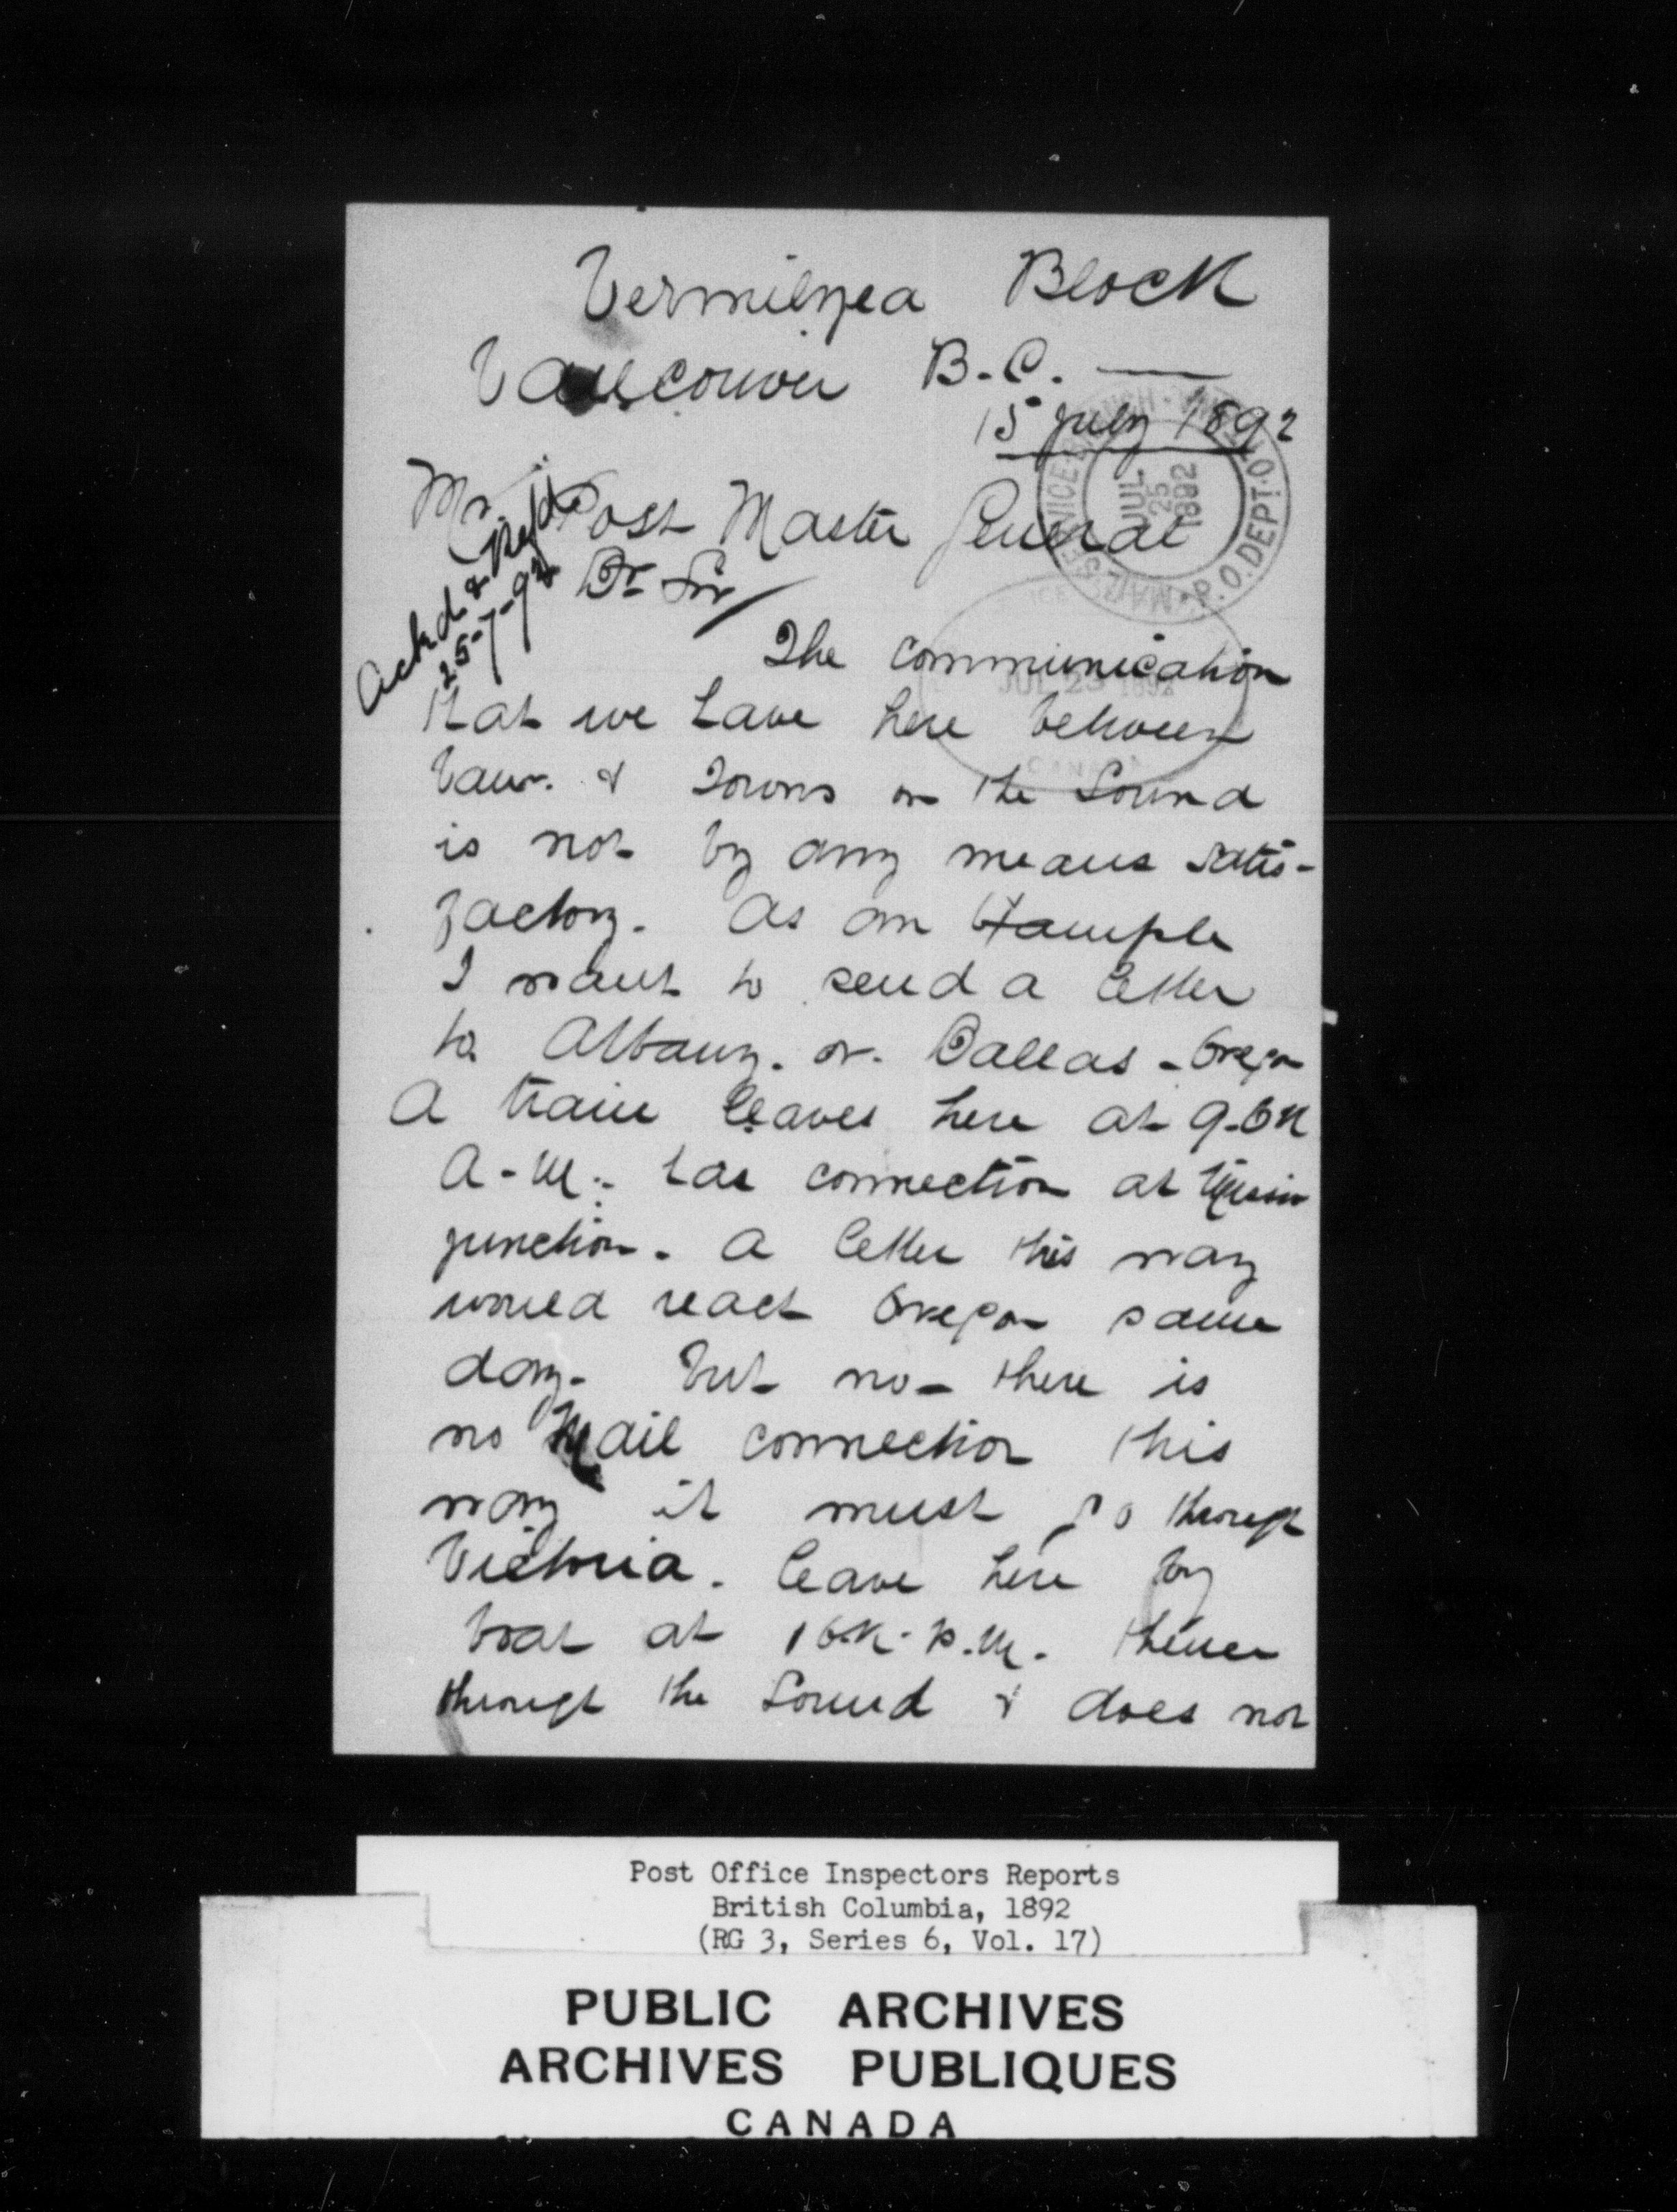 Vermilyea Block
Vancouver B.C. —
15 July 1892
MAIL SERVICE BRANCH P.O. DEPT. O
JUL
25
1892
Mr. Post Master General
Ackd & Refd
25-7-92
Dr Sir/
The communication
JUL 23 1892
that we have here between
CANADA
Vanr. & Towns on the Sound
is not by any means satis-
factory. As an Example
I want to send a letter
to Albany. or. Dallas - Oregon
A train leaves here at 9-OK
A-M. has connection at Mission
junction. A letter this way
would reach Oregon same
day. But no - there is
no Mail connection this
way it must go through
Victoria. leave here by
boat at 1 OK. P.M. thence
through the Sound & does not
Post Office Inspectors Reports
British Columbia, 1892
(RG 3, Series 6, Vol. 17)
PUBLIC ARCHIVES
ARCHIVES PUBLIQUES
CANADA